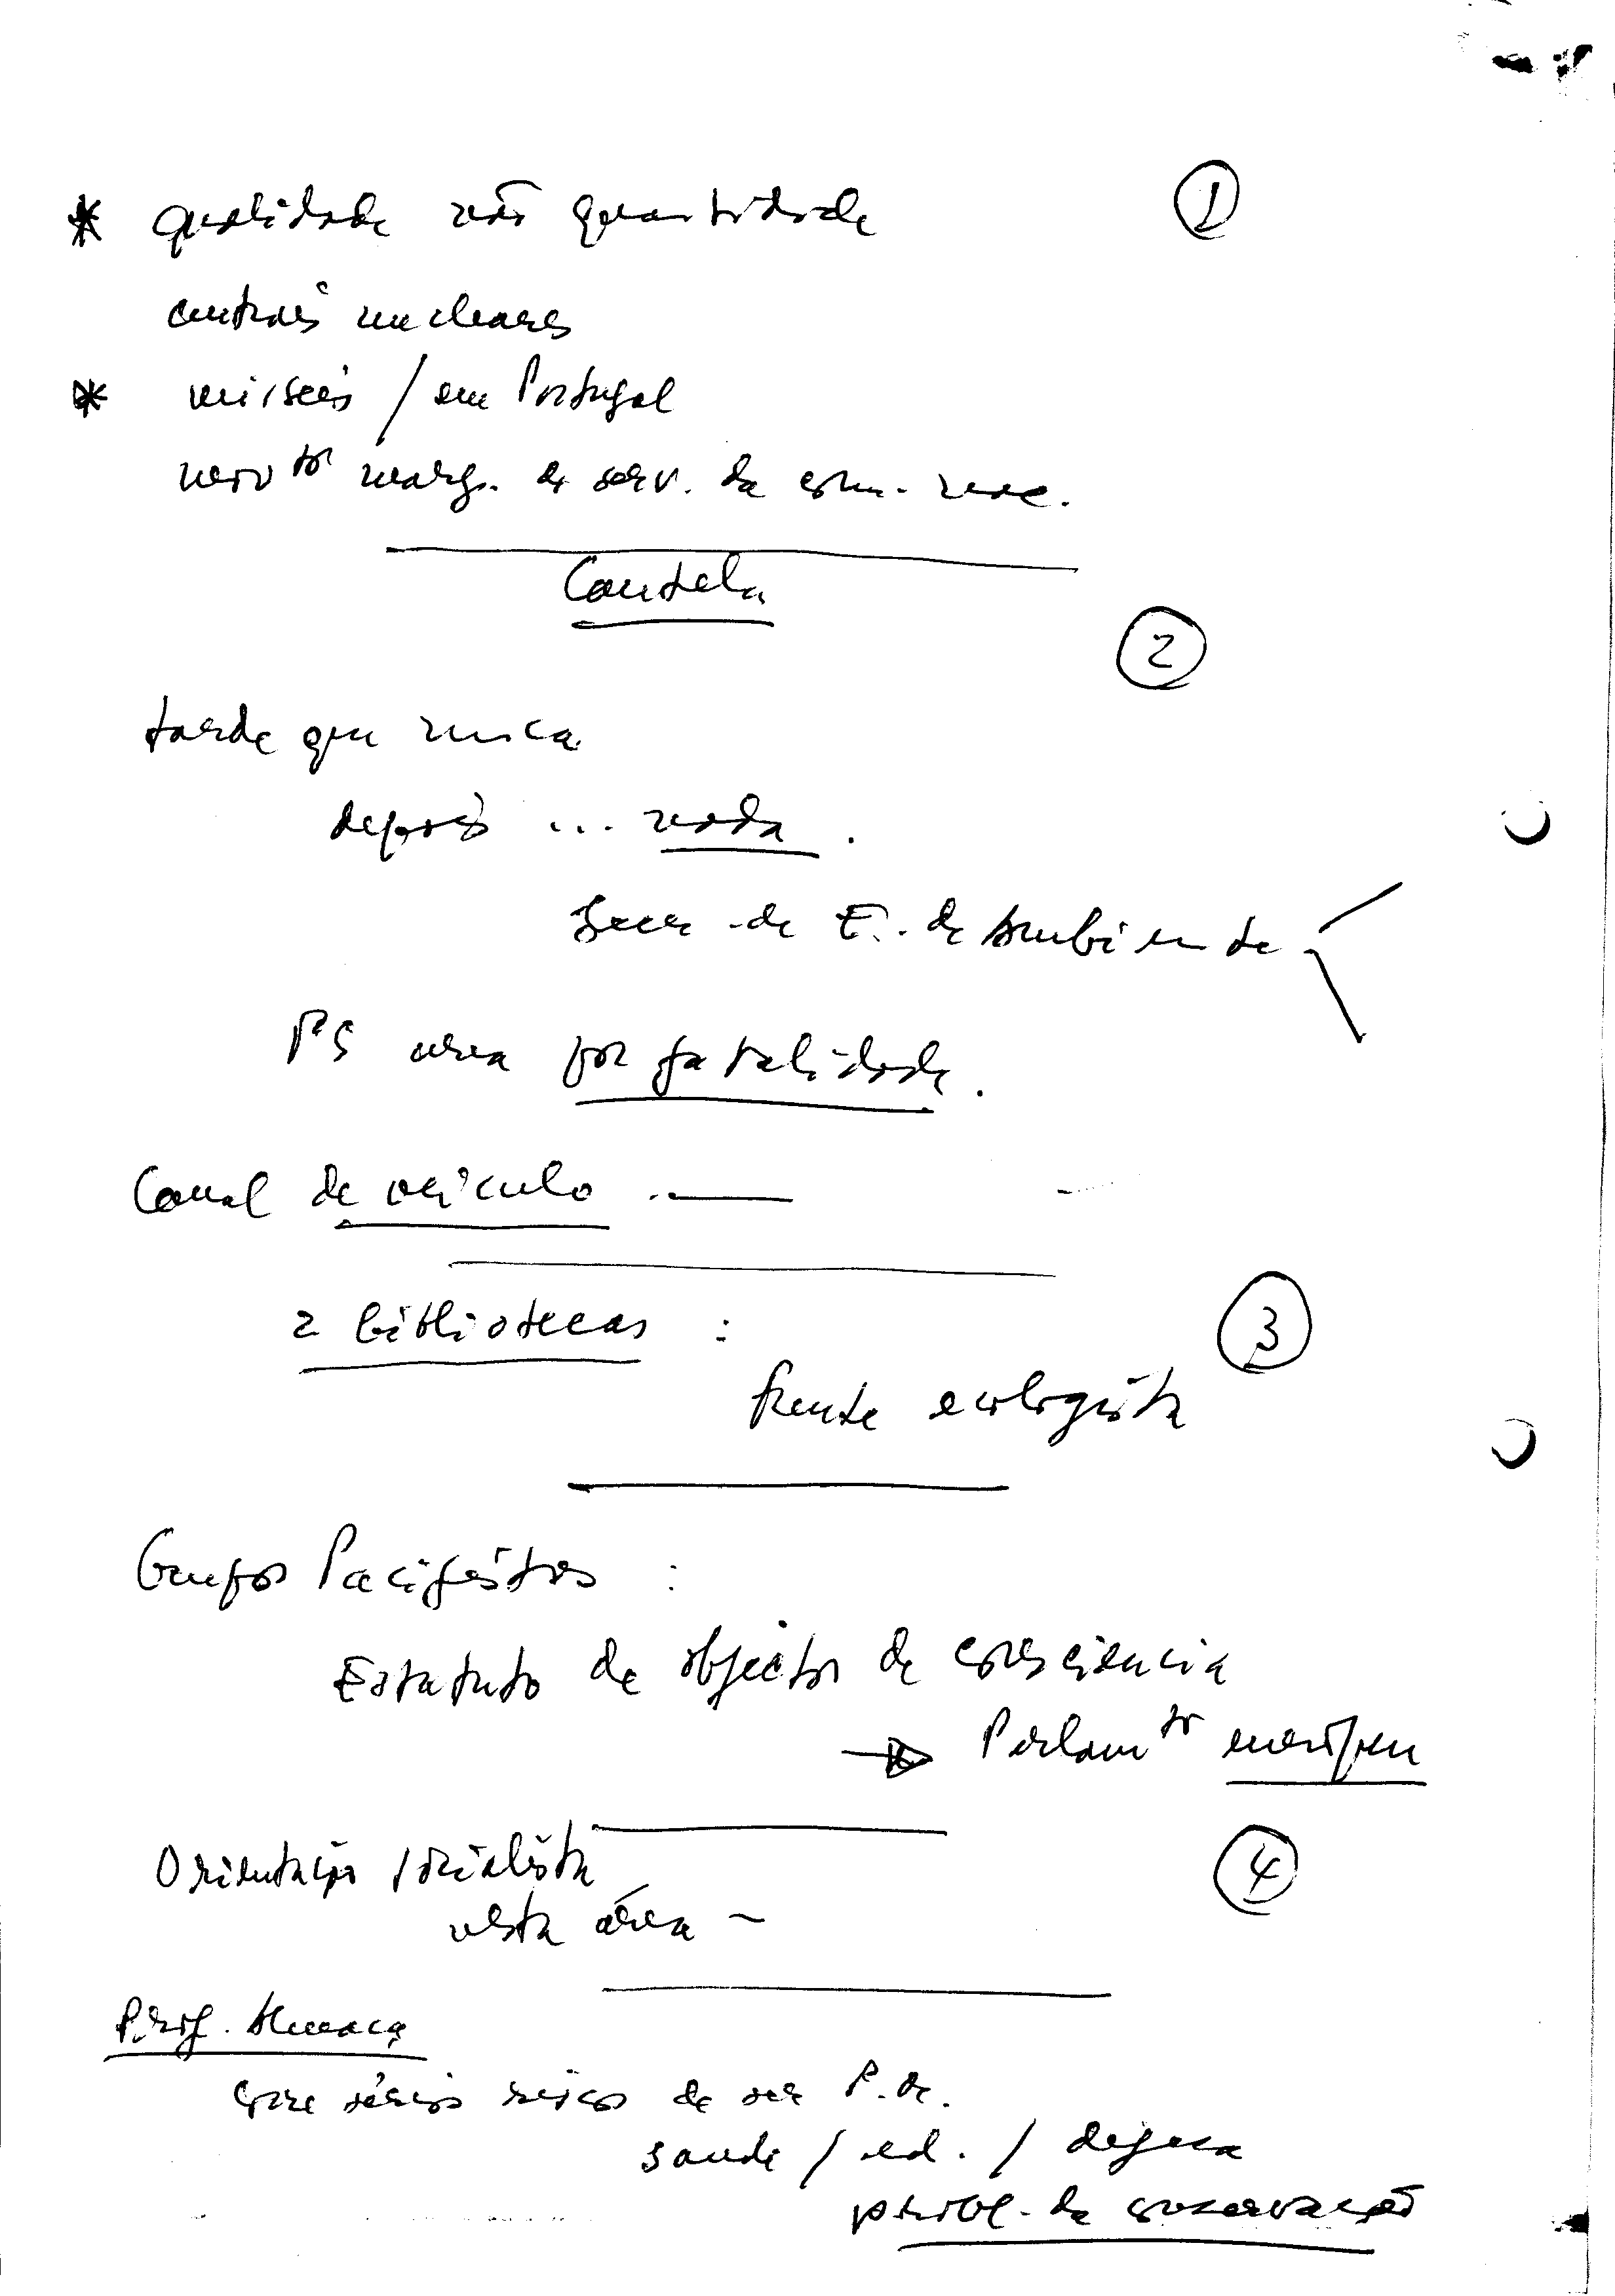 * qualidade não quantidade ①
centrais nucleares
* mísseis / em Portugal
mov to marg. de serv. da com.
Cautela
②
tarde que nunca
depois ... nada.
Secr. de E. de Ambiente
PS area por fatalidade.
Canal de veículo
2 bibliotecas :
③
frente ecologista
Grupos Pacifistas :
Estatuto de objector de consciencia
→ Parlam to europeu
Orientação socialista ④
nesta área –
Prof. Almaça
corre sérios riscos de ser P. de.
saude / ed. / defesa
probl. da conservação